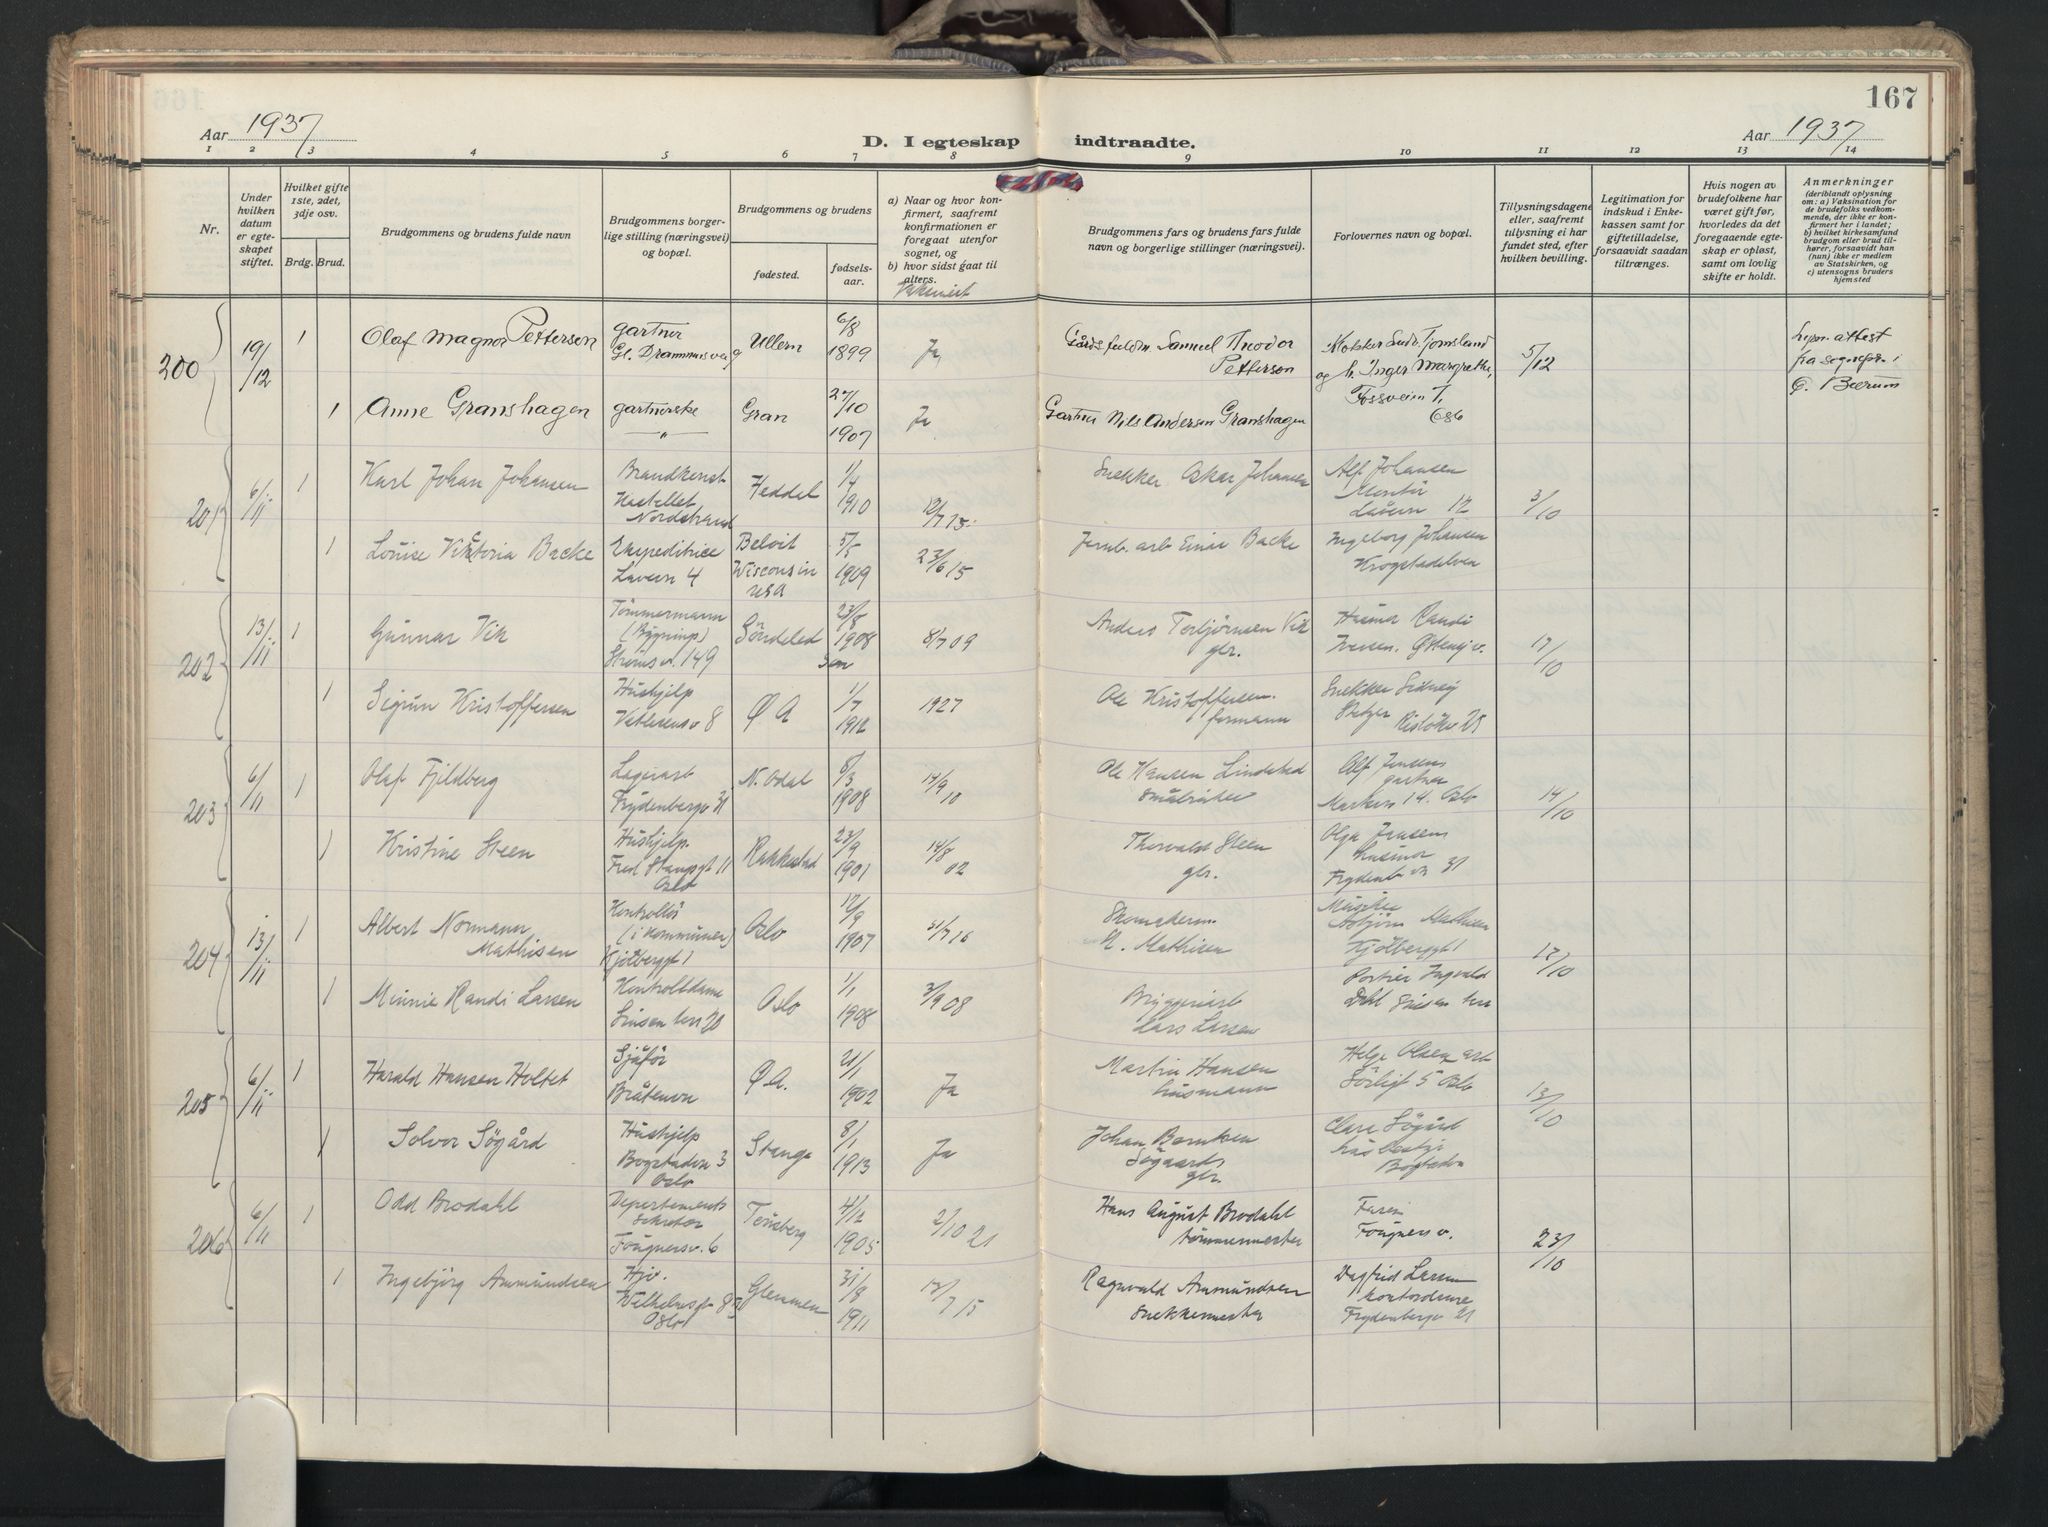 Aar 1937
D. I egteskap indtraadte.
167
Aar 1937
1 2 3 4 5 6 7 8 9 10 11 12 13 14
Nr.
Under hvilken datum er egteskapet stiftet.
Hvilket gifte 1ste, 2det, 3dje osv.
Brdg. Brud.
Brudgommens og brudens fulde navn
Brudgommens borgerlige stilling (næringsvei) og bopæl.
Brudgommens og brudens
fødested.
fødselsaar.
a) Naar og hvor konfirmert, saafremt konfirmationen er foregaat utenfor sognet, og
b) hvor sidst gaat til alters.
Vaksinert
Brudgommens fars og brudens fars fulde navn og borgerlige stillinger (næringsvei).
Forlovernes navn og bopæl.
Tillysningsdagene eller, saafremt tillysning ei har fundet sted, efter hvilken bevilling.
Legitimation for indskud i Enkekassen samt for giftetilladelse, forsaavidt saadan tiltrænges.
Hvis nogen av brudefolkene har været gift før, hvorledes da det foregaaende egteskap er opløst, samt om lovlig skifte er holdt.
Anmerkninger
(deriblandt oplysning om: a) Vaksination for de brudefolks vedkommende, der ikke er konfirmert her i landet; b) hvilket kirkesamfund brudgom eller brud tilhører, forsaavidt han (hun) ikke er medlem av Statskirken, og c) utensogns bruders hjemsted
200 19/12 1 Olaf Magnor Pettersen gartner Gl. Drammensvei 9 Ullern 6/8 1899 Ja Samuel Theodor Pettersen
5/12
attest fra sognepr. i Ø. Bærum
1 Anne Granshagen gartnerske Gran 27/10 1907 Ja Gartner Nils Andersen Granshagen
201 6/11 1 Karl Johan Johansen Kastellet Nordstrand Heddel 1/4 1910 12/7 15 Snekker Oskar Johansen Alf Johansen Montör 12 3/10
1 Louise Viktoria Backe Expeditrice 4 Beloit Wisconsin USA 5/5 1909 23/6 15 Jernb. arb Einar Backe Ingeborg Johansen Krogstadelven
202 13/11 1 Gunnar Vik Tömmermann (Bygnings) Ströms v. 149 Söndeled 23/5 1908 8/7 09 Anders Torbjörnsen Vik gbr. Husmor Randi Iversen. Östensj v. 17/10
1 Sigrun Kristoffersen Hushjelp 8 Ø A 1/7 1912 1927 Ole Kristoffersen formann Snekker Sidney
203 6/11 1 Olaf Fjeldberg Lagerarb Frydenbergv 31 N. Odal 5/3 1908 14/9 10 Ole Hansen Lindstad småbruker Alf Jensen gartner Markv 14. Oslo 14/10
1 Kristine Steen Hushjelp. Fred Stangsgt 11 Oslo Rakkestad 23/9 1901 14/8 02 Thorvald Steen gbr. Olga Jensen husmor Frydenb v 31
204 13/11 1 Albert Normann Mathisen Kontrollör (i kommunen) Kjölberggt 1 Oslo 12/9 1907 31/7 16 Skomakerm. N. Mathisen Asbjörn Mathisen Kjölberggt 1 12/10
1 Minnie Randi Larsen Kontrolldame Sinsen terr 20 Oslo 1/1 1908 3/9 08 Bryggeriarb Lars Larsen Portier Ingvald Dahl Sinsen terr
205 6/11 1 Harald Hansen Holtet Sjåför Bråtenvn Ø.A. 21/1 1902 Ja Martin Hansen husmann Helge Olsen arb Sörligt 5 Oslo 13/10
1 Solvor Sögård Hushjelp Bogstadvn 3 Oslo Stange 8/1 1913 Ja Johan Berntsen Sögaard gbr. Clara Sögård Bogstadvn
206 6/11 1 Odd Brodahl Departements sekretær Fougnersv. 6 Tönsberg 4/12 1905 2/10 21 Hans August Brodahl tömmermester Faren Fougners v. 23/10
1 Ingebjörg Ammundsen Hjv. Oslo Glemmen 31/8 1911 12/7 15 Ragnvald Ammundsen snekkermester Dagfrid Larsen kontordame Frydenbergv 21